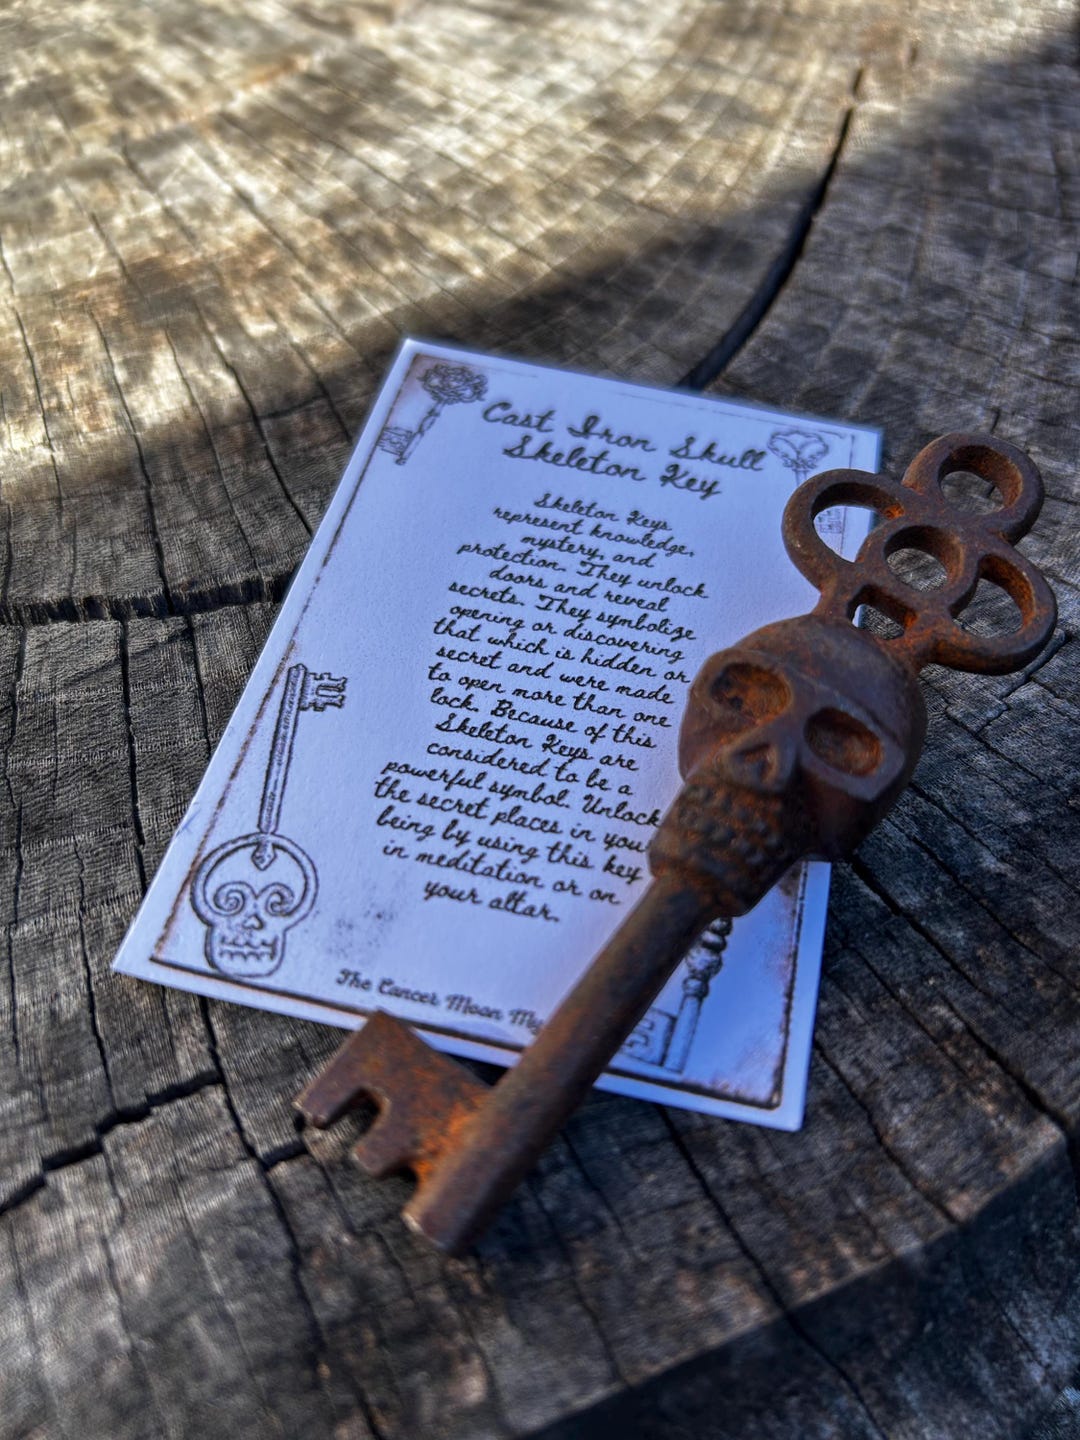 Cast Iron Skull
Skeleton Key
Skeleton Keys
represent knowledge,
mystery, and
protection. They unlock
doors and reveal
secrets. They symbolize
opening or discovering
that which is hidden or
secret and were made
to open more than one
lock. Because of this
Skeleton Keys are
considered to be a
powerful symbol. Unlock
the secret places in your
being by using this key
in meditation or on
your altar.
The Cancer Moon